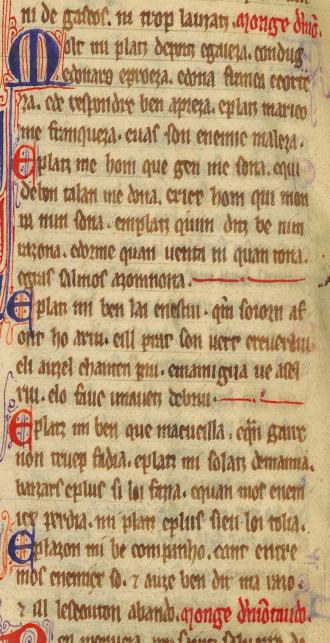 ni de gascos. ni trop lauzatz. monge d'mō.
Molt mi platz deportz egaieza. condug
edonars eproeza. dona franca ecorte
za. ede respondre ben apreza. eplatz maric o
me franqueza. euas son enemic maleza.
Eplatz me hom que gen me sona. equi
debon talan me dona. ericx hom qui non
mi sona. emplatz quim ditz be nim
razona. edormir quan uenta ni quan trona.
egras salmos azornona.
Eplatz mi ben lai enestiu. qm soiorn af
ont ho ariu. eill prat son uert
eli auzel chanten piu. emamigua ue asel
riu. elo fauc unauetz debriu.
Eplatz mi ben que macueilla. eqan gaire
non truep fadia. eplatz mi solatz demamia.
baizars eplus si loi fazia. equan mos enem
icx perdia. mi platz eplus sieu loi tolia.
Eplazon mi be companho. cant entre
mos enemicx so. & auze ben dir ma razo.
& ill lescouton abando. monge d'mōtaudo.